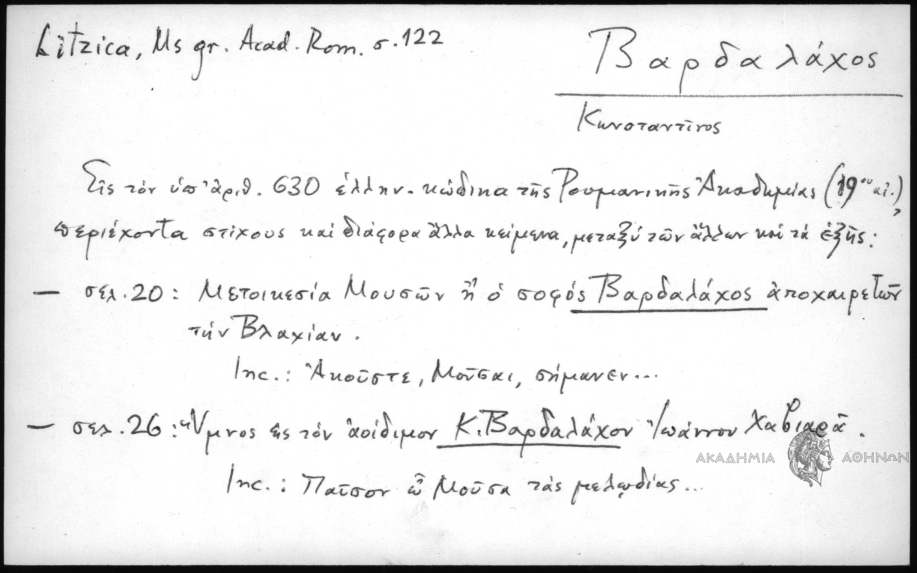 Litzica, Ms gr. Acad. Rom. σ. 122
Βαρδαλάχος
Κωνσταντῖνος
Εἰς τὸν ὑπ' ἀριθ. 630 ἑλλην. κώδικα τῆς Ρουμανικῆς Ἀκαδημίας (19ου αἰ.),
περιέχοντα στίχους καὶ διάφορα ἄλλα κείμενα, μεταξὺ τῶν ἄλλων καὶ τὰ ἑξῆς:
— σελ. 20: Μετοικεσία Μουσῶν ἢ ὁ σοφὸς Βαρδαλάχος ἀποχαιρετῶν
τὴν Βλαχίαν.
Inc.: Ἀκοῦστε, Μοῦσαι, σήμανεν...
— σελ. 26: Ὕμνος εἰς τὸν ἀοίδιμον Κ. Βαρδαλάχον Ἰωάννου Χαβιαρᾶ.
Inc.: Παῦσον ὦ Μοῦσα τὰς μελῳδίας...
ΑΚΑΔΗΜΙΑ ΑΘΗΝΩΝ